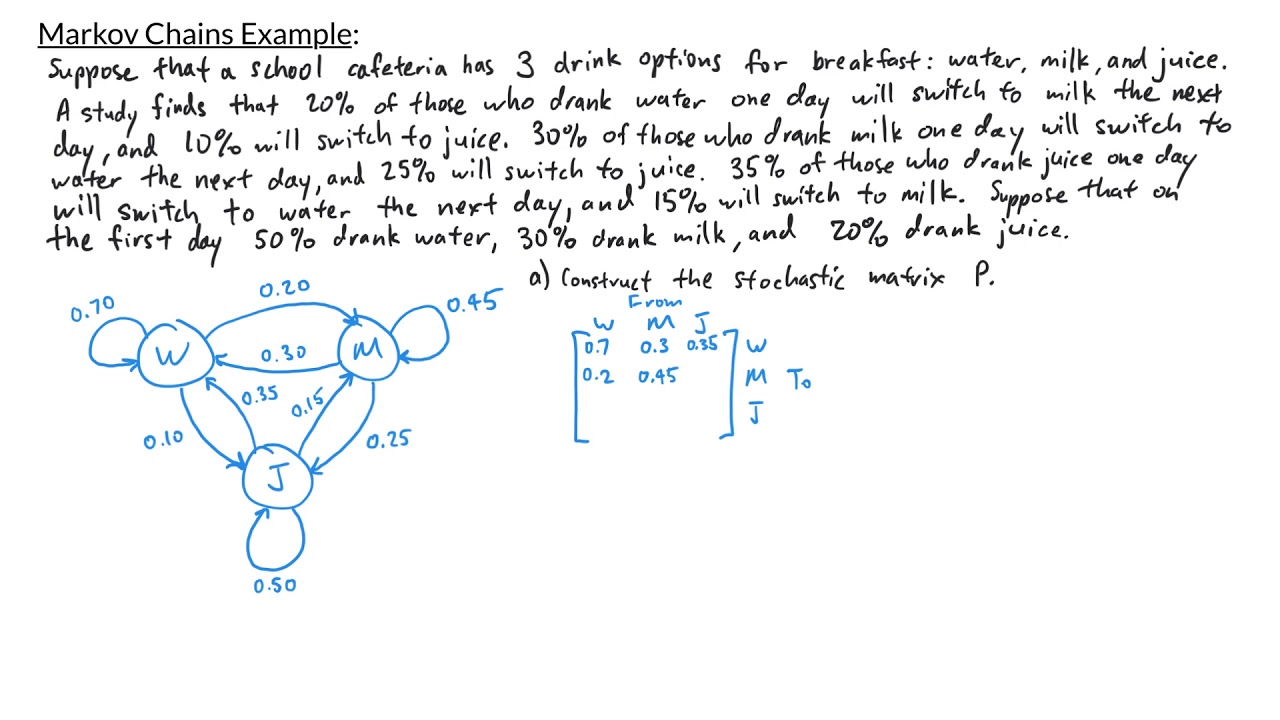 Markov Chains Example:
Suppose that a school cafeteria has 3 drink options for breakfast: water, milk, and juice.
A study finds that 20% of those who drank water one day will switch to milk the next
day, and 10% will switch to juice. 30% of those who drank milk one day will switch to
water the next day, and 25% will switch to juice. 35% of those who drank juice one day
will switch to water the next day, and 15% will switch to milk. Suppose that on
the first day 50% drank water, 30% drank milk, and 20% drank juice.
a) Construct the stochastic matrix P.
From
W M J
0.7 0.3 0.35 W
0.2 0.45 M To
J
0.70
0.20
0.45
W
M
0.30
0.35
0.15
0.10
0.25
J
0.50